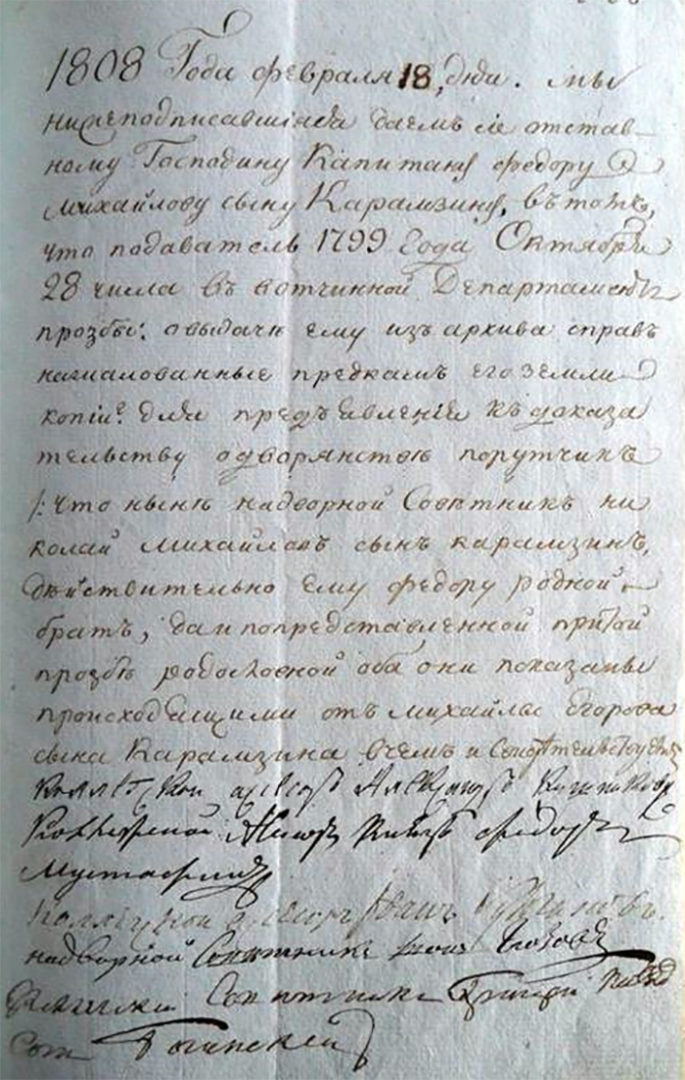 1808 Года февраля 18, дня. мы
нижеподписавшiяся даемъ сiе отстав
ному Господину Капитану федору
Михайлову сыну Карамзину, въ томъ,
что подаватель 1799 Года Октября
28 числа въ вотчинной Департаментъ
прозбы: о выдачѣ ему изъ архива справъ
нажалованные предкамъ его земли
копiи? для предъявленiя къ доказа
тельству одворянствѣ порутчикъ
/: что нынѣ надворной Совѣтникъ ни
колай михайловъ сынъ карамзинъ,
дѣйствительно ему федору родной
братъ, да и попредставленной притой
прозбѣ родословной оба они показаны
происходящими отъ михайлы Егорова
сына Карамзина вчемъ и Свидѣтельствуемъ
Коллежской асессоръ Александръ
Коллежской Асесоръ Князь федоръ
Мустафинъ
Коллежской асессоръ Иванъ
надворной Совѣтникъ
Совѣтникъ Григорей